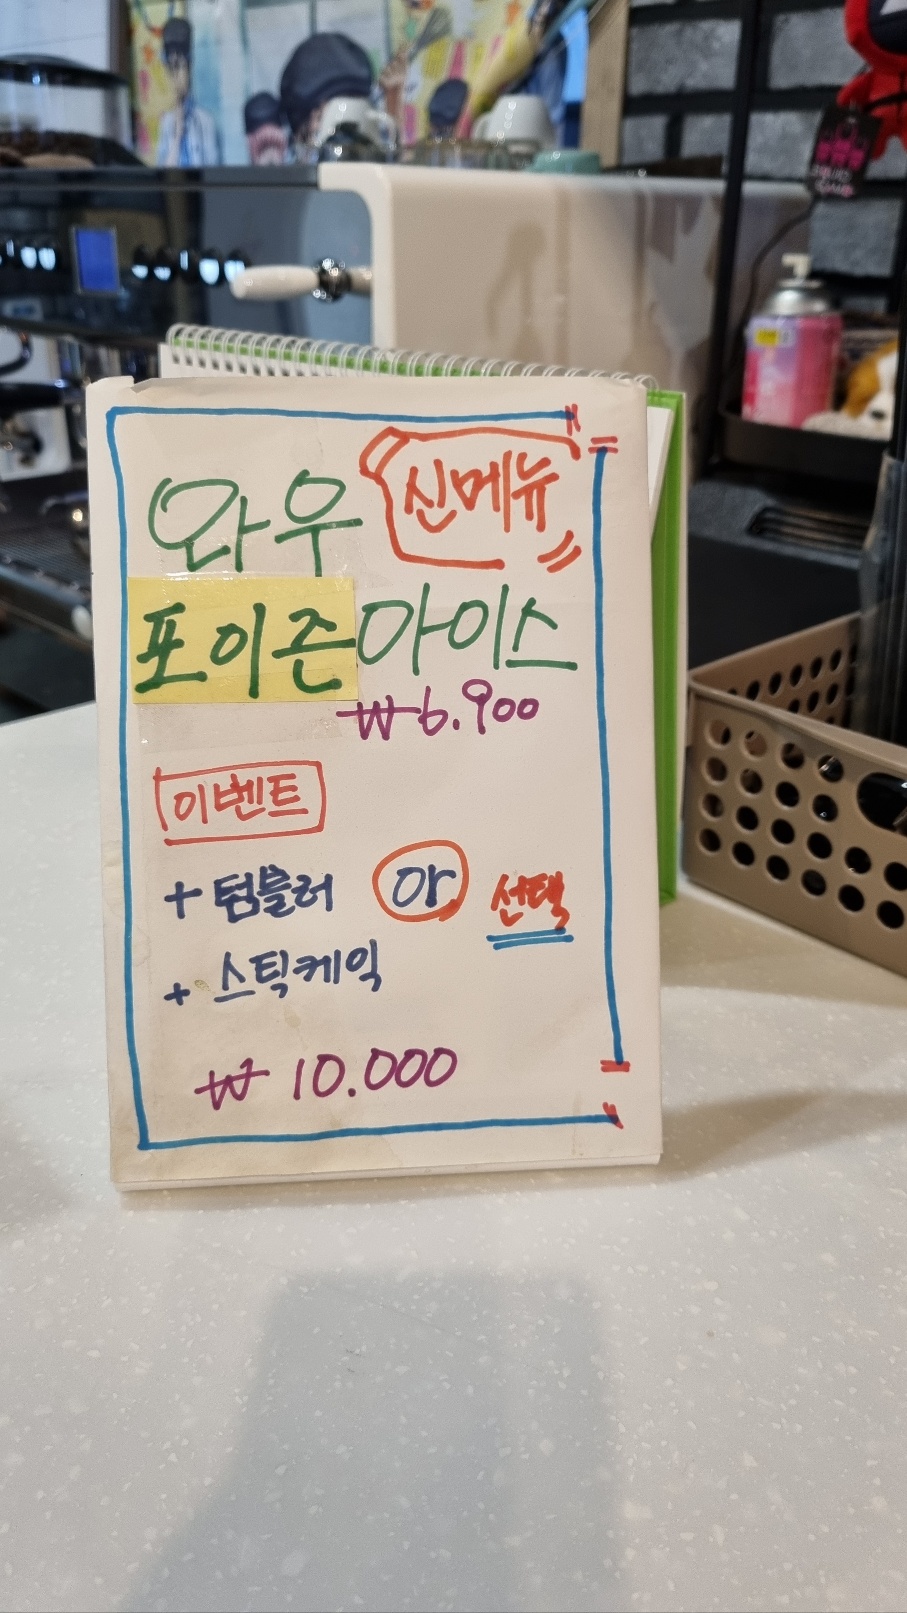 와우 신메뉴
포이즌아이스
₩6.900
이벤트
+ 텀블러 or 선택
+ 스틱케익
₩ 10.000